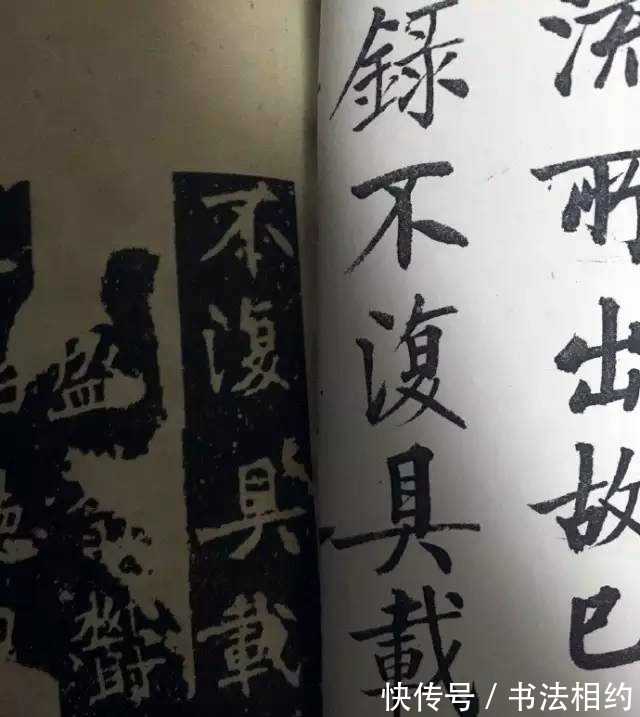 流所出故已
錄不復具載
不復具載
盈
快传号 / 书法相约